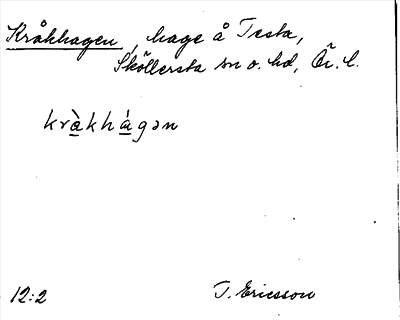 Kråkhagen, hage å Testa,
Sköllersta sn o. hd, Ör. l.
kràkhágən
12:2 T. Ericsson